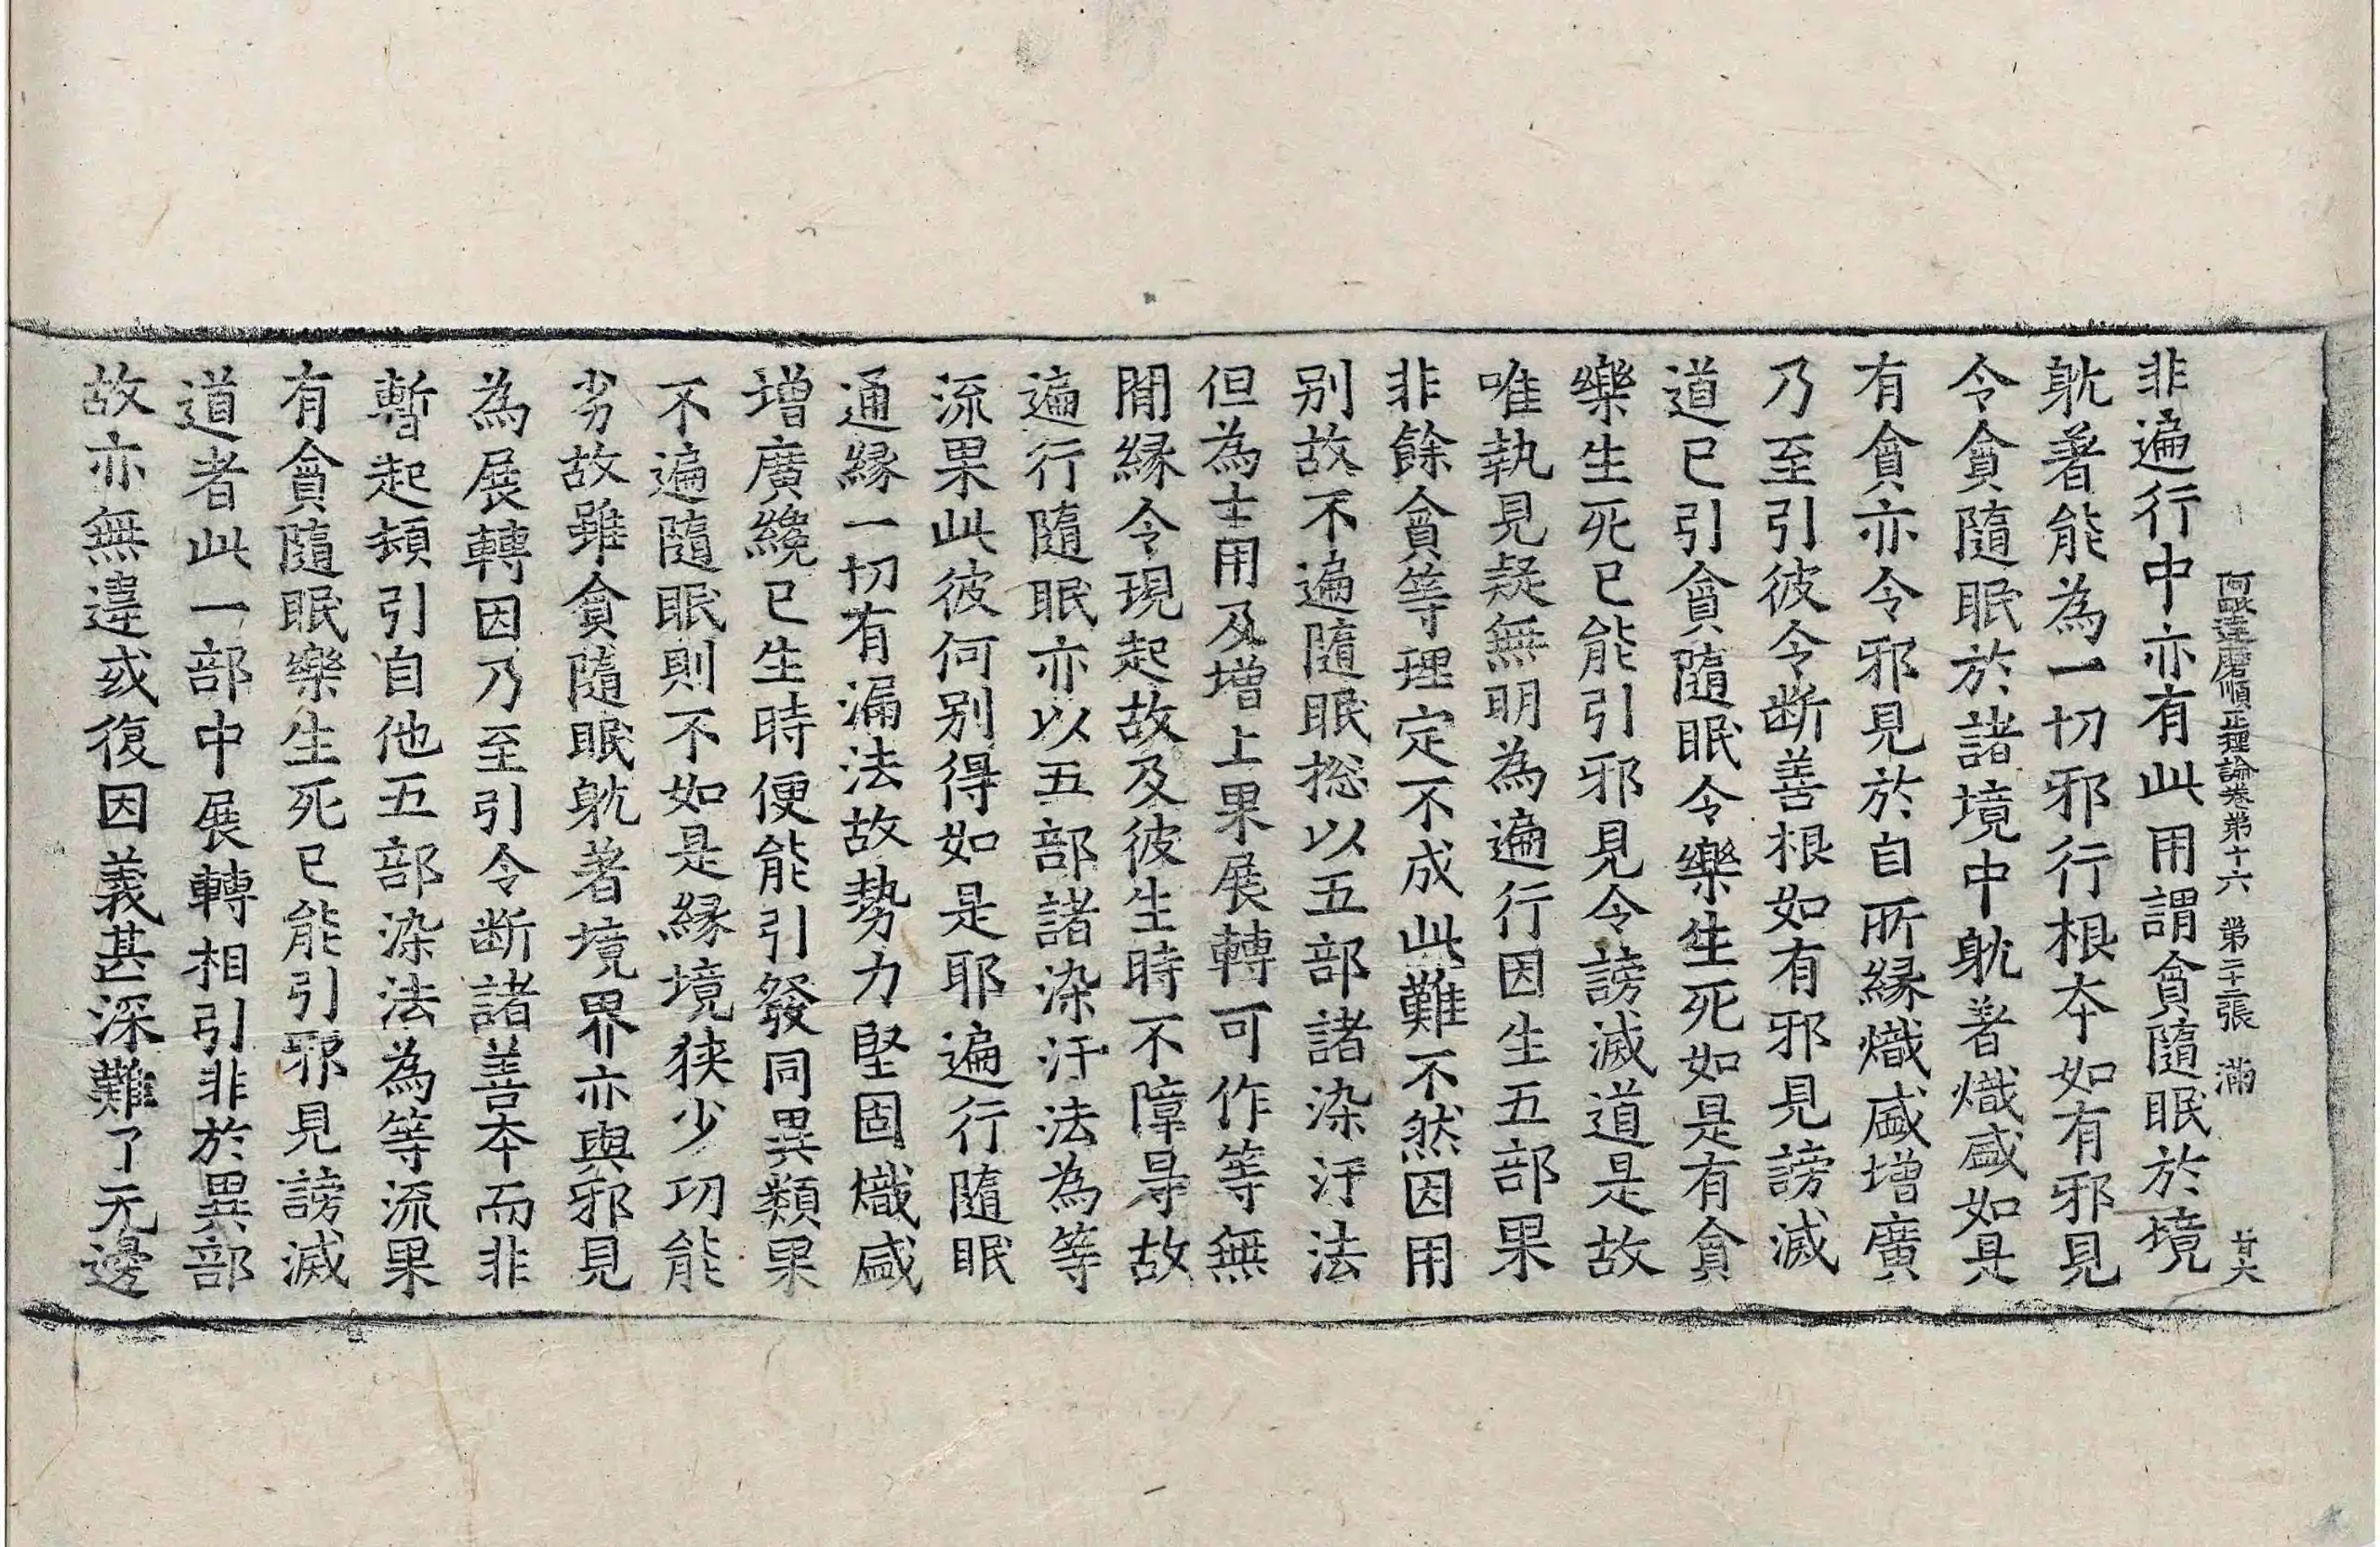 阿毗達磨順正理論卷第十六 第二十張 滿
非遍行中亦有此用謂貪隨眠於境
躭著能為一切邪行根本如有邪見
令貪隨眠於諸境中躭著熾盛如是
有貪亦令邪見於自所緣熾盛增廣
乃至引彼令断善根如有邪見謗滅
道已引貪隨眠令樂生死如是有貪
樂生死已能引邪見令謗滅道是故
唯執見疑無明為遍行因生五部果
非餘貪等理定不成此難不然因用
別故不遍隨眠捴以五部諸染汙法
但為士用及增上果展轉可作等無
間緣令現起故及彼生時不障㝵故
遍行隨眠亦以五部諸染汙法為等
流果此彼何別得如是耶遍行隨眠
通緣一切有漏法故勢力堅固熾盛
增廣纔已生時便能引發同異類果
不遍隨眠則不如是緣境狹少功能
劣故雖貪隨眠躭著境界亦與邪見
為展轉因乃至引令断諸善本而非
暫起頓引自他五部染法為等流果
有貪隨眠樂生死已能引邪見謗滅
道者此一部中展轉相引非於異部
故亦無違或復因義甚深難了无邊